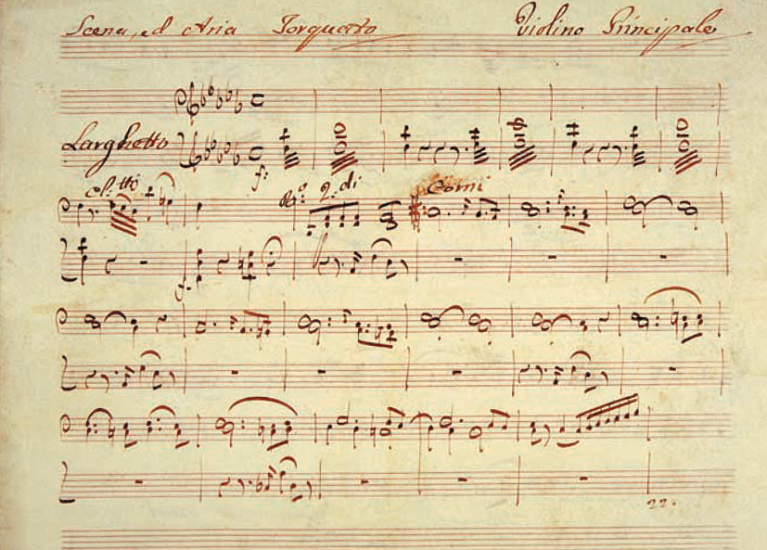 Scena, ed Aria Torquato Violino Principale
Larghetto
f:
2. di Corni
f.